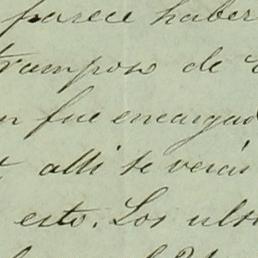 parece haber
tramposo de
n fue encargad
alli se verás
esto. Los ulti